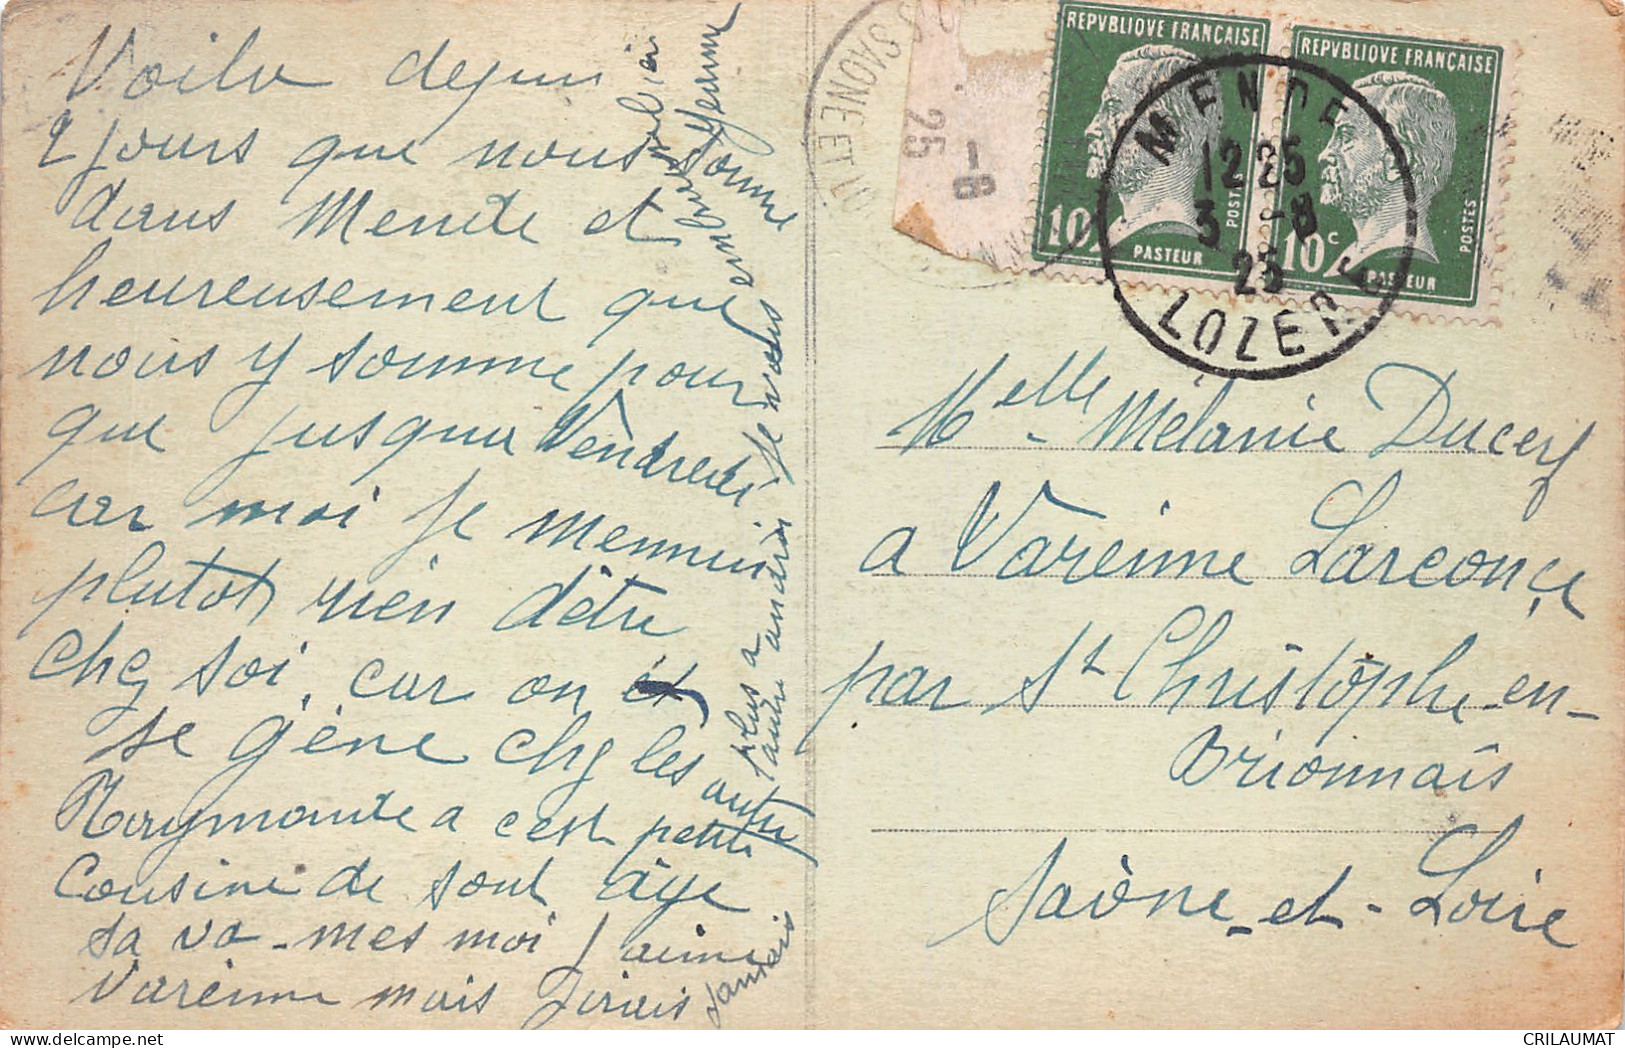 Voila depui
2 jours que nous somme
dans Mende et
heureusement que
nous y somme pour
que jusqua Vendredi
car moi je mennui
plutot rien d'êtré
cheg soi, car on
se gène cheg les autre
Raymonde a c'est petite
Cousine de sont âge
sa va - mes moi j'aime
Varenne mais j'irais
jamais
plus a
l'autre androi je vous
embrasse bien
Yenne
REPVBLIQUE FRANÇAISE
10c
PASTEUR
POSTES
REPVBLIQUE FRANÇAISE
10c
PASTEUR
POSTES
MENDE
12 25
3 - 8
25
LOZERE
SAONE ET LOI
1 8
25
Melle Mélanie Ducerf
a Varenne Larconçe
par St Christôphe-en-
Brionnais
Saône-et-Loire
CRILAUMAT